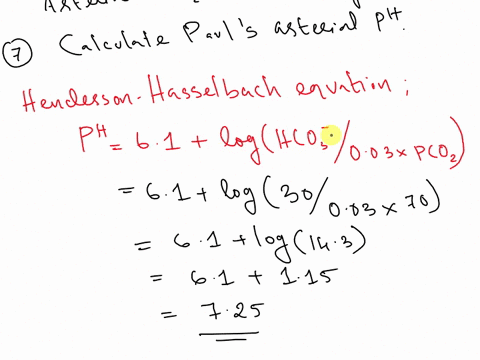 Arterial
⑦ Calculate Paul's arterial pH.
Henderson-Hasselbach equation;
PH = 6.1 + log(HCO3-/0.03 x PCO2)
= 6.1 + log(30/0.03 x 70)
= 6.1 + log(14.3)
= 6.1 + 1.15
= 7.25